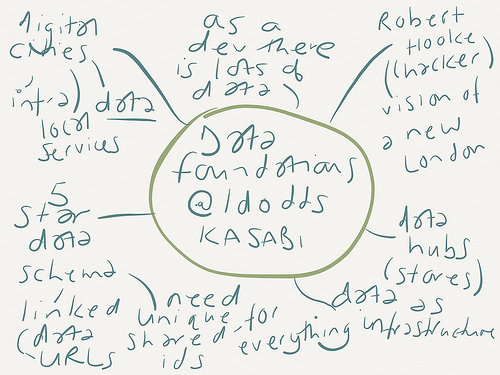 digital
cities
infra)
data
local
services
as a
dev there
is lots of
data
Robert
Hooke
(hacker)
vision of
a new
London
Data
foundations
@ldodds
KASABI
5
star
data
schema
linked
(data
URLs
need
unique
shared
ids
for
everything
data
hubs
(stores)
data as
infrastructure